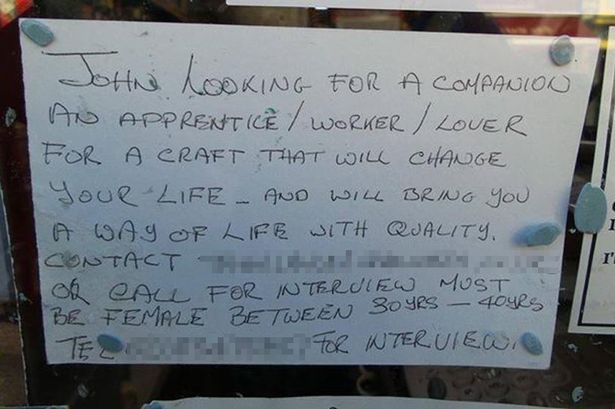 JOHN LOOKING FOR A COMPANION
AN APPRENTICE / WORKER / LOVER
FOR A CRAFT THAT WILL CHANGE
YOUR LIFE - AND WILL BRING YOU
A WAY OF LIFE WITH QUALITY.
CONTACT
OR CALL FOR INTERVIEW MUST
BE FEMALE BETWEEN 30YRS - 40YRS
TEL FOR INTERVIEW.